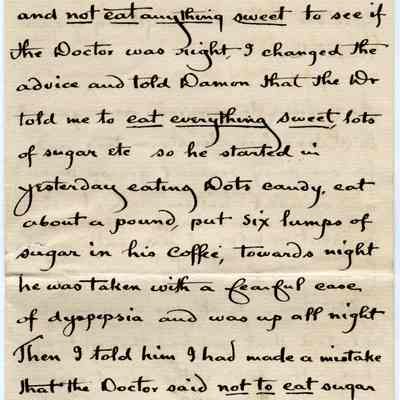 and not eat anything sweet to see if
the Doctor was right, I changed the
advice and told Damon that the Dr
told me to eat everything sweet, lots
of sugar etc so he started in
yesterday eating Dots candy, eat
about a pound, put six lumps of
sugar in his coffee, towards night
he was taken with a fearful case,
of dyspepsia and was up all night
Then I told him I had made a mistake
that the Doctor said not to eat sugar